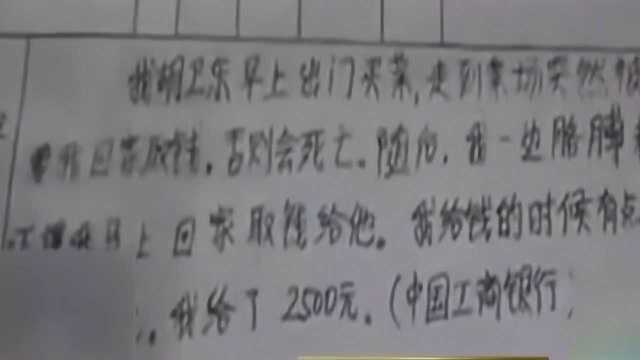 我胡卫乐早上出门买菜,走到菜场突然被
我回家取钱,否则会死亡。随后,我一边胳膊
马上回家取钱给他。我给钱的时候有点
我给了2500元。(中国工商银行